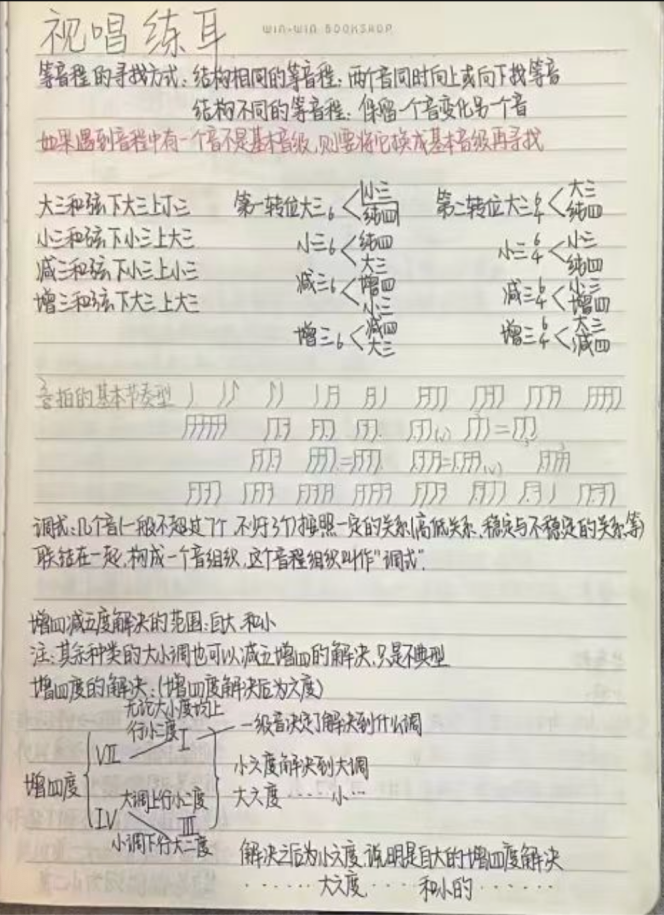 视唱练耳
WIN-WIN BOOKSHOP
等音程的寻找方式:结构相同的等音程:两个音同时向上或向下找等音
结构不同的等音程:保留一个音变化另一个音
如果遇到音程中有一个音不是基本音级,则要将它换成基本音级再寻找
大三和弦下大三上小三 第一转位大三6<小三 纯四 第二转位大三6/4<大三 纯四
小三和弦下小三上大三 小三6<纯四 大三 小三6/4<小三 纯四
减三和弦下小三上小三 减三6<增四 小三 减三6/4<小三 增四
增三和弦下大三上大三 增三6<减四 大三 增三6/4<大三 减四
音拍的基本节奏型
调式:几个音(一般不超过7个,不少于3个)按照一定的关系(高低关系,稳定与不稳定的关系等)
联结在一起,构成一个音组织,这个音程组织叫作"调式".
增四减五度解决的范围:自大,和小
注:其余种类的大小调也可以减五增四的解决,只是不典型
增四度的解决:(增四度解决后为六度)
无论大小度均上
行小二度 一级音决定了解决到什么调
VII I
小六度解决到大调
增四度 大调上行小二度 大六度……小…
IV III
小调下行大二度
解决之后为小六度,说明是自大的增四度解决
……大六度…和小的……